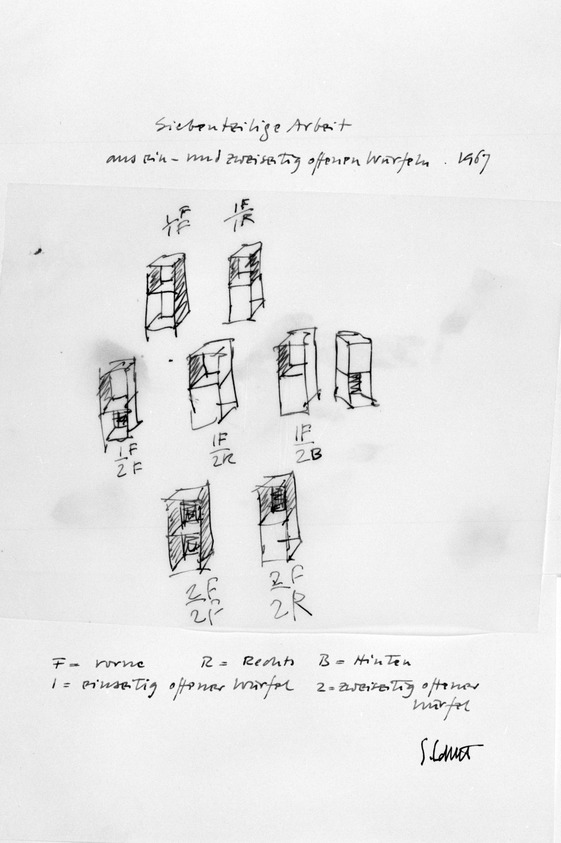 Siebenteilige Arbeit
aus ein- und zweiseitig offenen Würfeln . 1967
1F 1F
1F 1R
1F 1F 1F
2F 2R 2B
2F 2F
2F 2R
F = vorne R = Rechts B = Hinten
1 = einseitig offener Würfel 2 = zweiseitig offener
Würfel
S. LeWitt